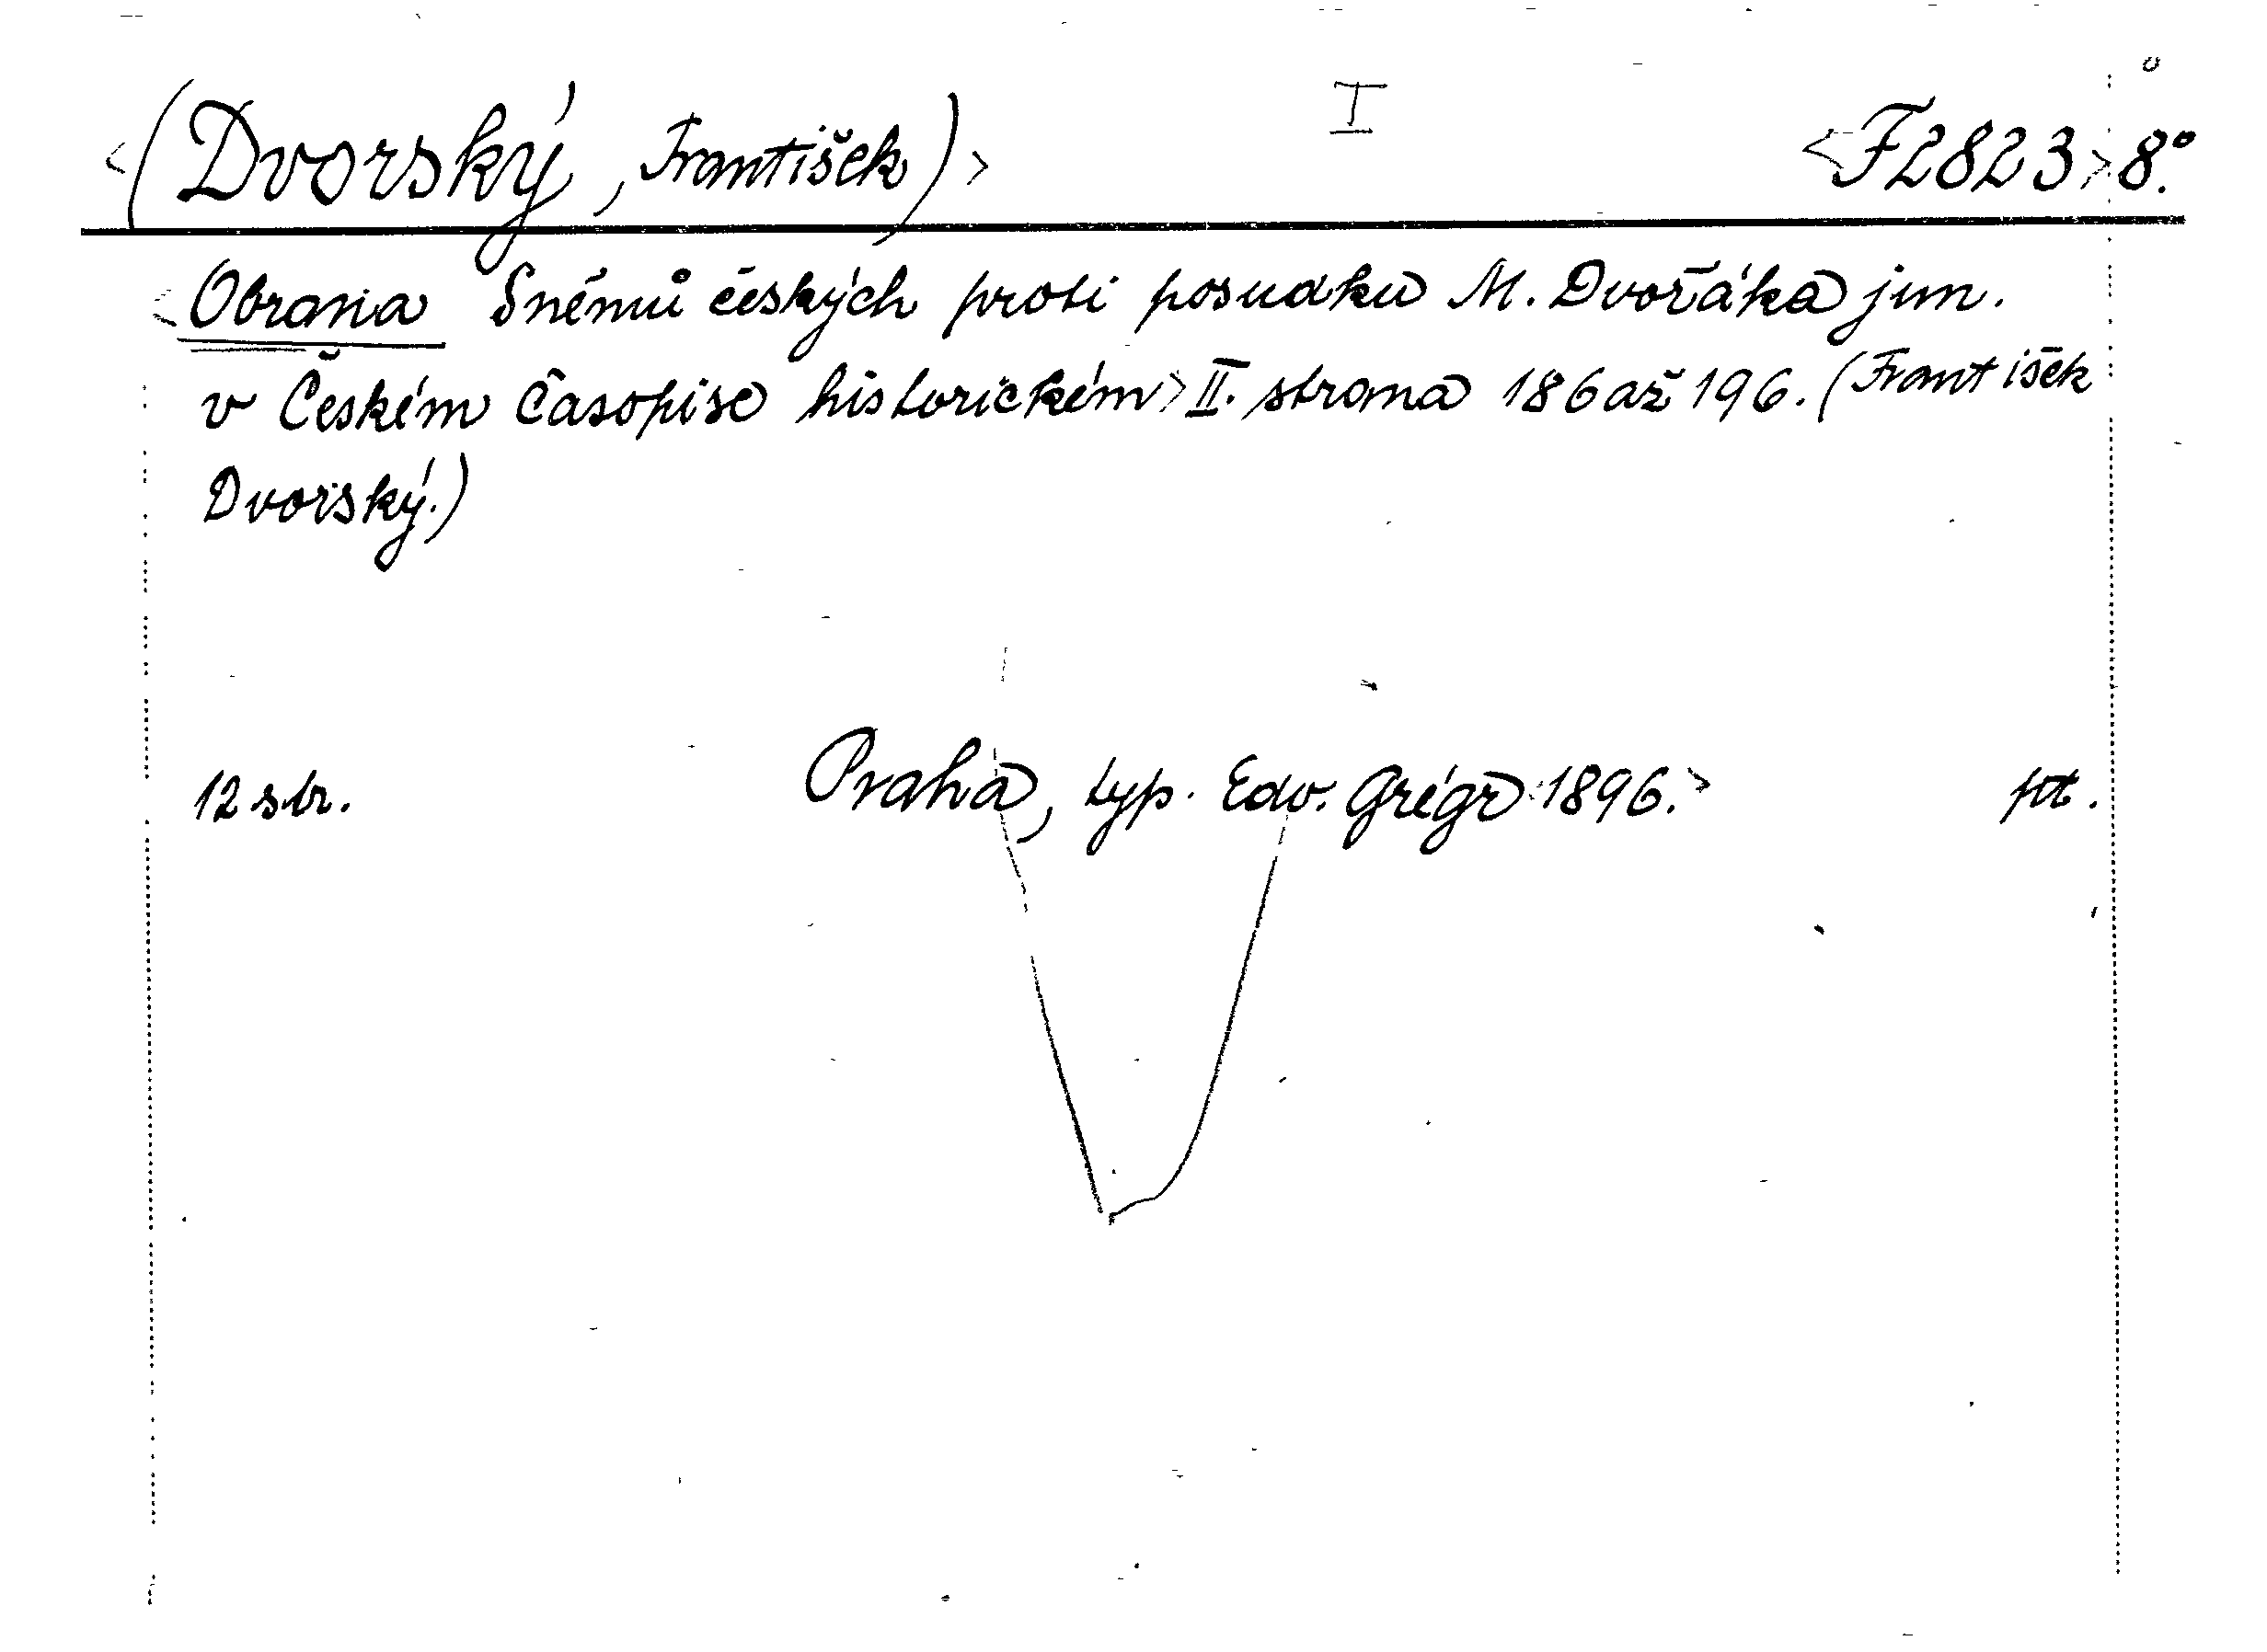 <(Dvorský, František)> I <F2823> 8.°
<Obrana Sněmů českých proti posudku M. Dvořáka jun.
v Českém Časopise historickém> II. strana 186 až 196. (František
Dvorský.)
12 str. Praha, typ. Edv. Grégr <1896.> ptt.